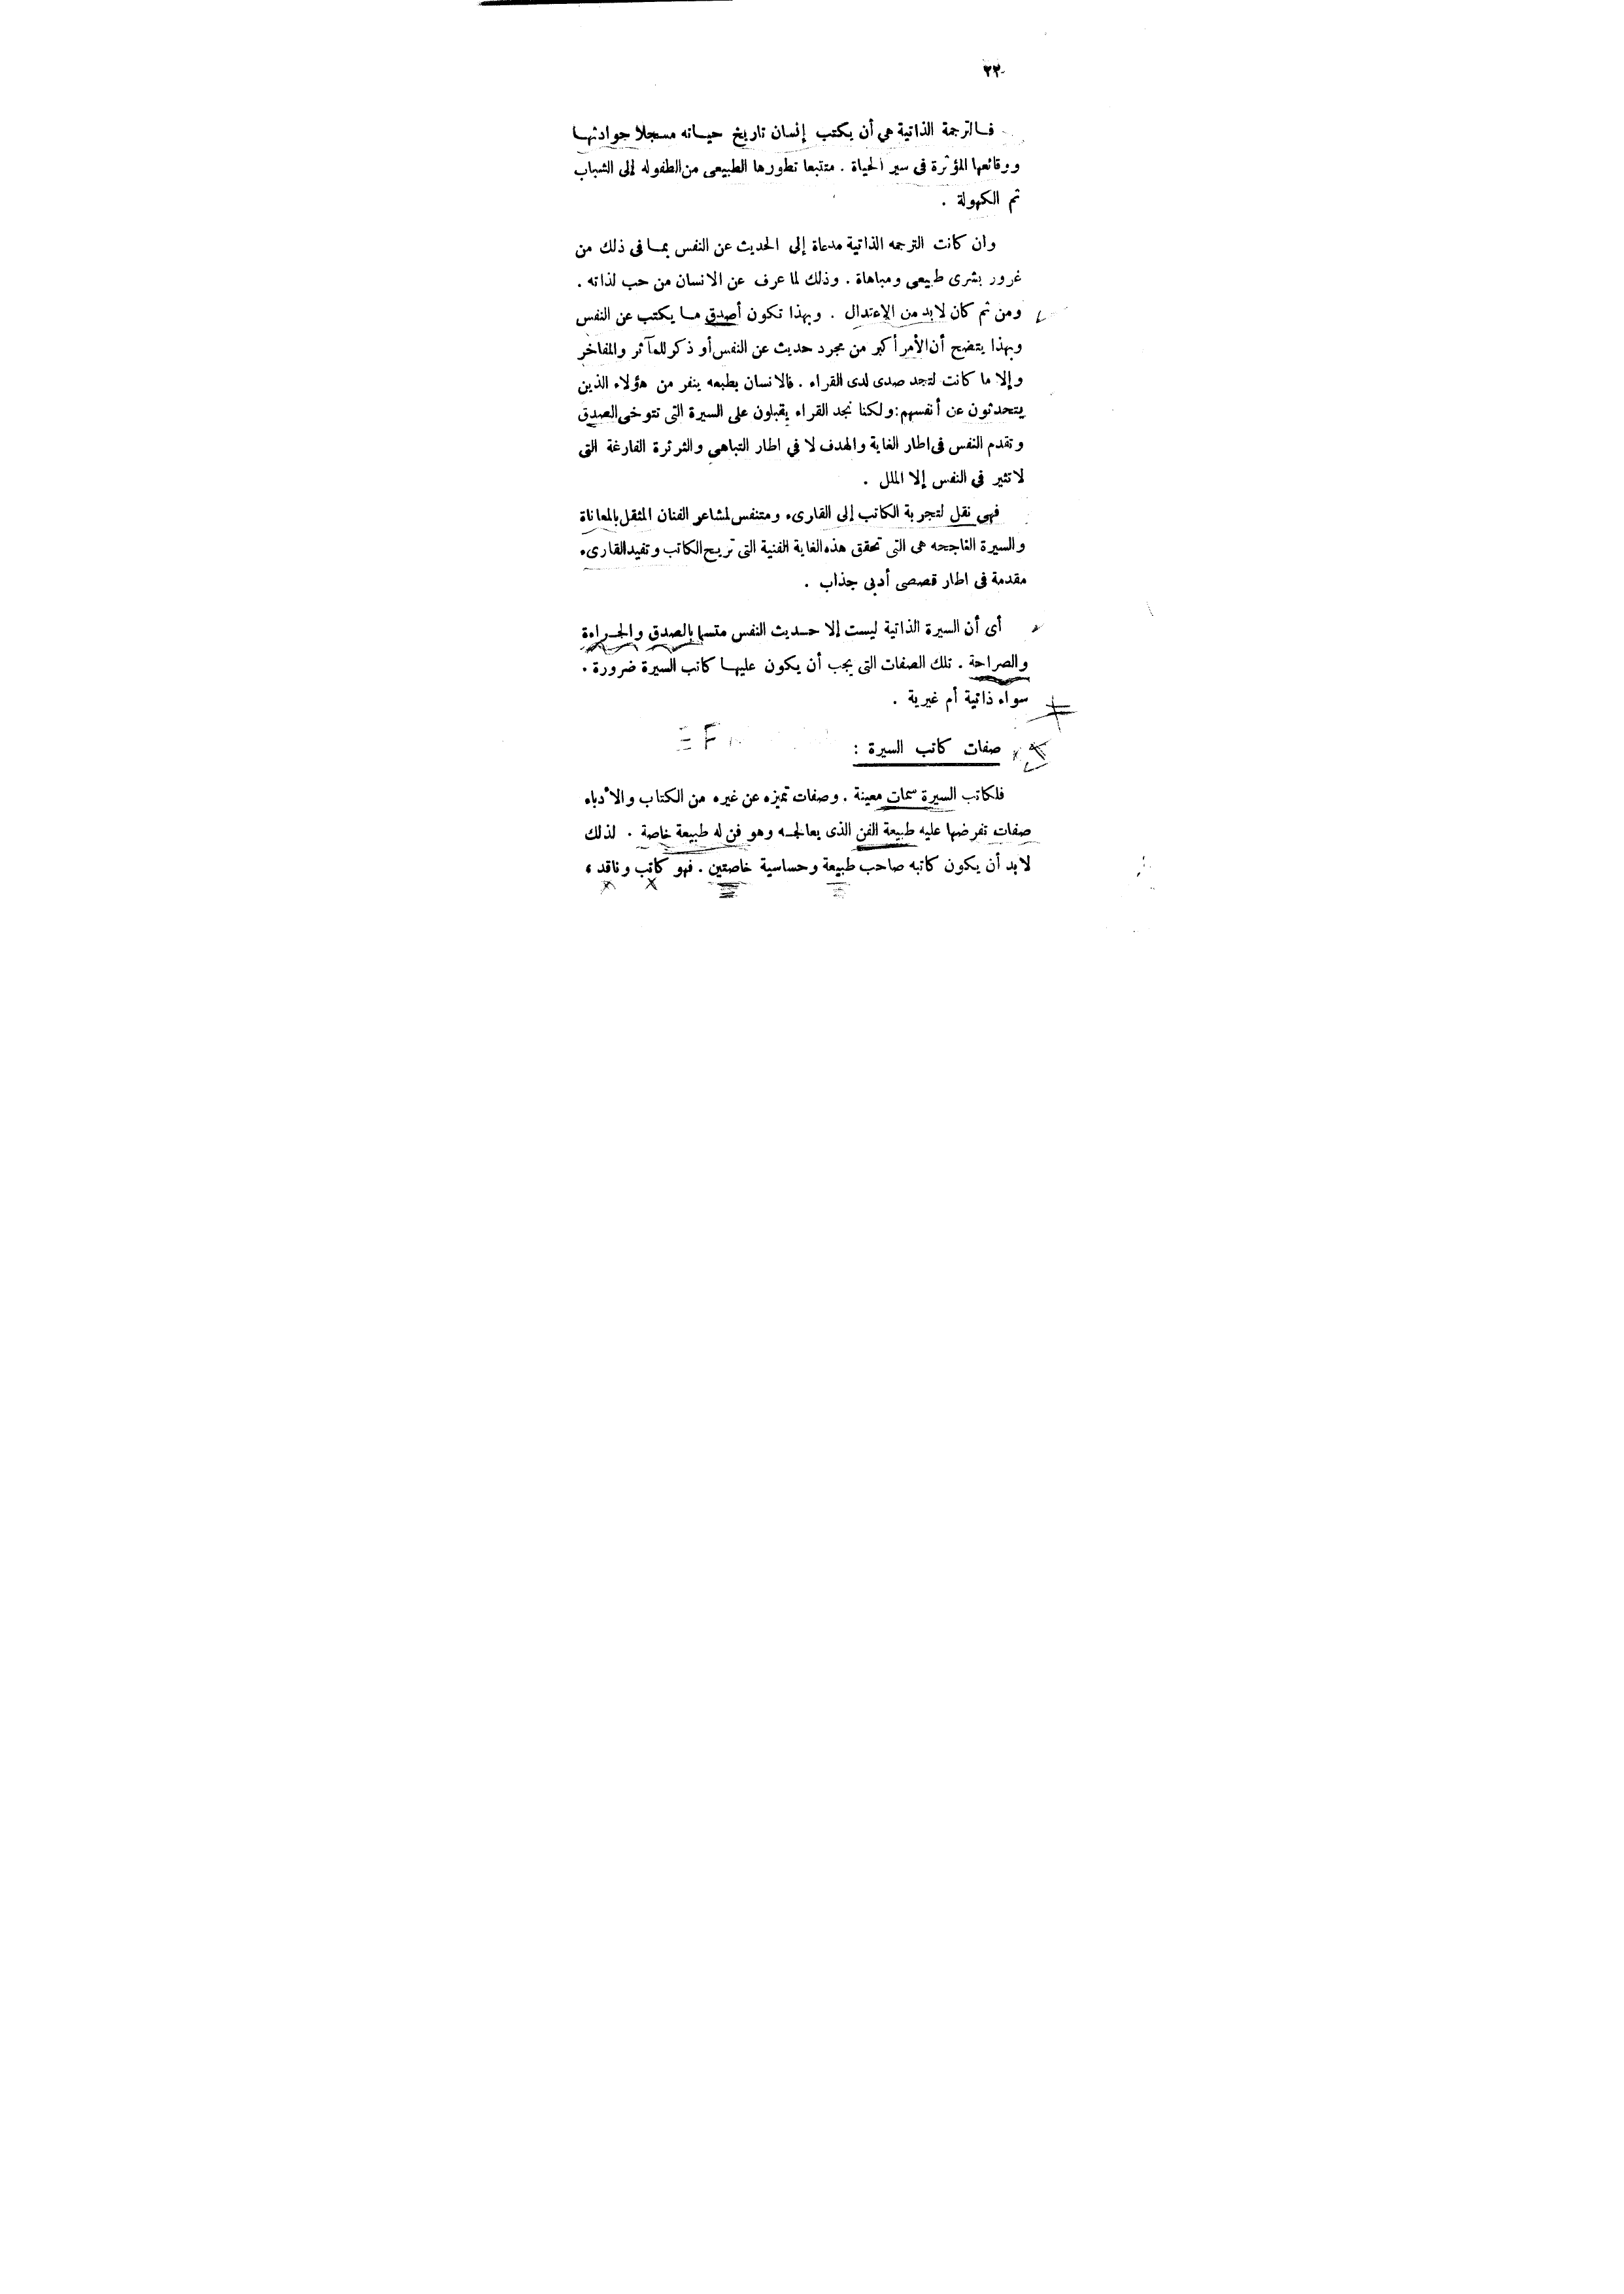 ٢٢
فالترجمة الذاتية هي أن يكتب إنسان تاريخ حياته مسجلا حوادثها
ووقائعها المؤثرة فى سير الحياة . متتبعا تطورها الطبيعى من الطفوله إلى الشباب
ثم الكهولة .
وان كانت الترجمه الذاتية مدعاة إلى الحديث عن النفس بما فى ذلك من
غرور بشرى طبيعى ومباهاة . وذلك لما عرف عن الانسان من حب لذاته .
ومن ثم كان لابد من الإعتدال . وبهذا تكون أصدق ما يكتب عن النفس
وبهذا يتضح أن الأمر أكبر من مجرد حديث عن النفس أو ذكر للمآثر والمفاخر
وإلا ما كانت لتجد صدى لدى القراء . فالانسان بطبعه ينفر من هؤلاء الذين
يتحدثون عن أنفسهم: ولكنا نجد القراء يقبلون على السيرة التى تتوخى الصدق
وتقدم النفس فى اطار الغاية والهدف لا في اطار التباهي والثرثرة الفارغة التى
لا تثير فى النفس إلا الملل .
فهى نقل لتجربة الكاتب إلى القارىء ومتنفس لمشاعر الفنان المثقل بالمعاناة
والسيرة الناجحه هى التى تحقق هذه الغاية الفنية التى تريح الكاتب وتفيد القارىء
مقدمة فى اطار قصصى أدبى جذاب .
أى أن السيرة الذاتية ليست إلا حديث النفس متسما بالصدق والجراءة
والصراحة . تلك الصفات التى يجب أن يكون عليها كاتب السيرة ضرورة .
سواء ذاتية أم غيرية .
صفات كاتب السيرة :
فلكاتب السيرة سمات معينة . وصفات تميزه عن غيره من الكتاب والأدباء
صفات تفرضها عليه طبيعة الفن الذى يعالجه وهو فن له طبيعة خاصة . لذلك
لابد أن يكون كاتبه صاحب طبيعة وحساسية خاصتين . فهو كاتب وناقد ،